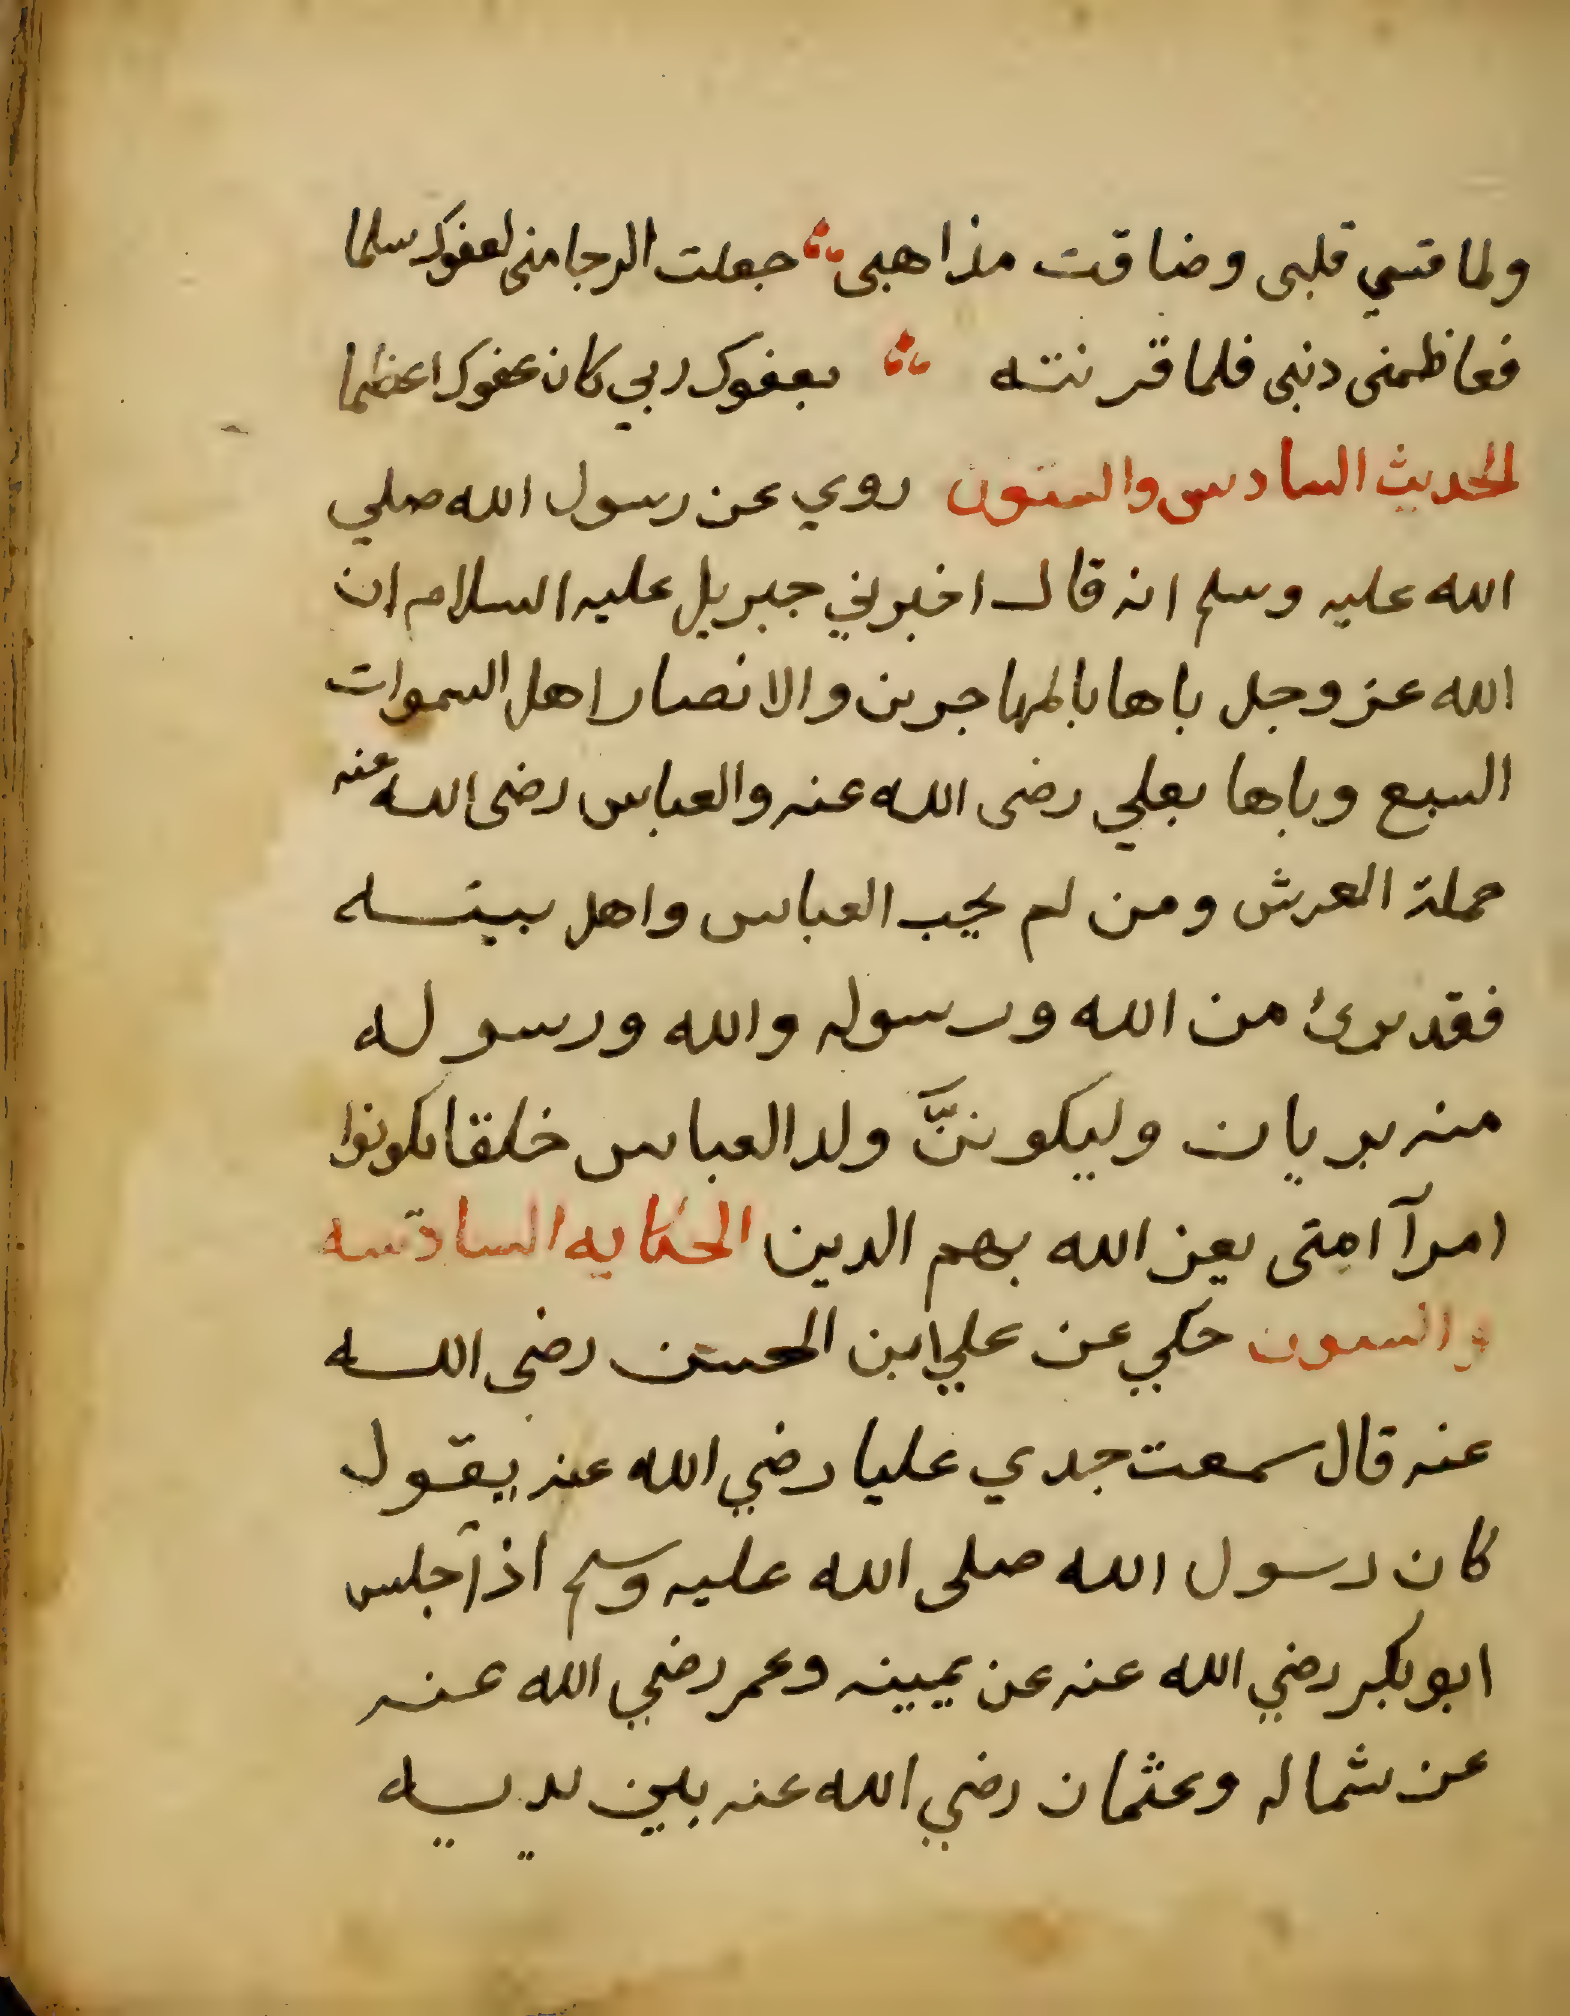 ولما قسي قلبى وضاقت مذاهبى جعلت الرجا منى لعفوك سلما
فعاظمنى دنبى فلما قرنته بعفوك ربي كان عفوك اعظما
الحديث السادس والستون روي عن رسول الله صلي
الله عليه وسلم انه قال اخبرني جبريل عليه السلام ان
الله عز وجل باها بالمهاجرين والانصار اهل السموات
السبع وباها بعلي رضى الله عنه والعباس رضى الله عنه
حملة العرش ومن لم يحب العباس واهل بيته
فقد برئ من الله ورسوله والله ورسوله
منه بريان وليكوننَّ ولد العباس خلقا يكونوا
امرآ امتى يعز الله بهم الدين الحكايه السادسه
والستون حكي عن علي ابن الحسين رضى الله
عنه قال سمعت جدي عليا رضي الله عنه يقول
كان رسول الله صلى الله عليه وسلم اذا جلس
ابو بكر رضي الله عنه عن يمينه وعمر رضي الله عنه
عن شماله وعثمان رضي الله عنه بين يديه